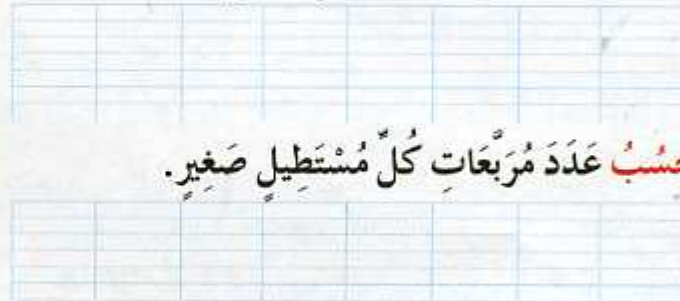 حْسُبُ عَدَدَ مُرَبَّعَاتِ كُلِّ مُسْتَطِيلٍ صَغِيرٍ.